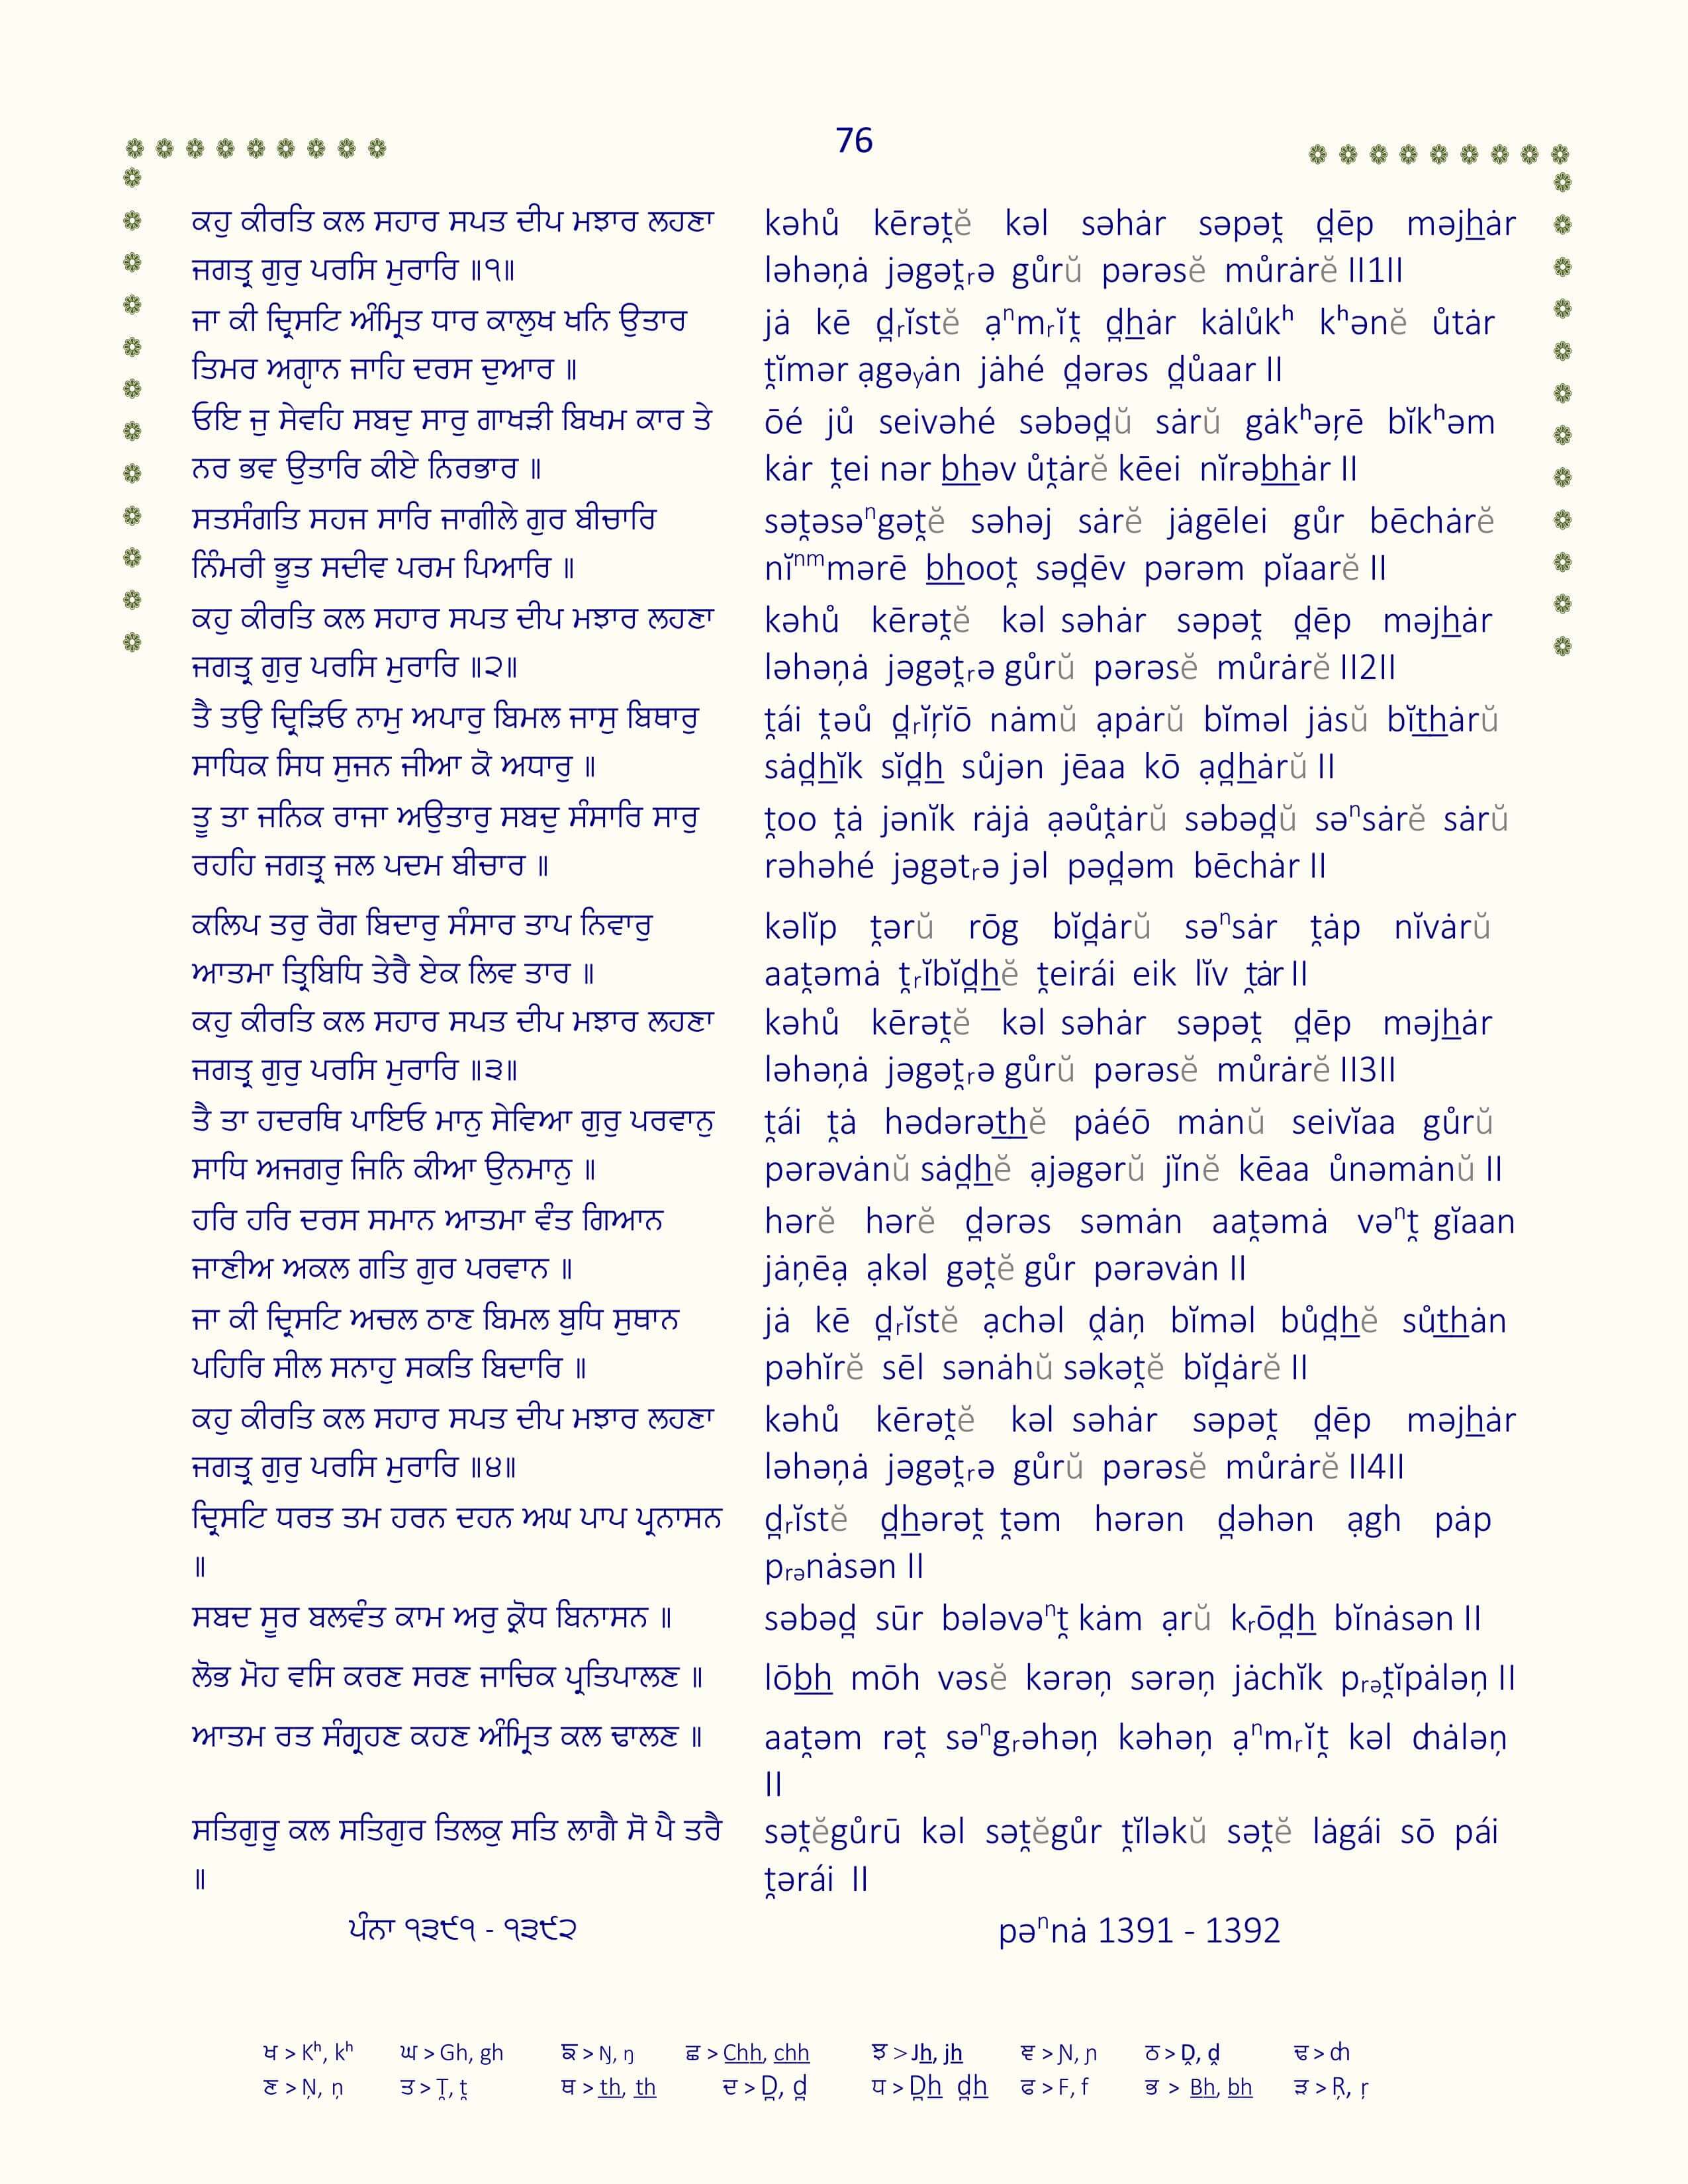 76
ਕਹੁ ਕੀਰਤਿ ਕਲ ਸਹਾਰ ਸਪਤ ਦੀਪ ਮਝਾਰ ਲਹਣਾ
ਜਗਤ੍ਰ ਗੁਰੁ ਪਰਸਿ ਮੁਰਾਰਿ ॥੧॥
ਜਾ ਕੀ ਦ੍ਰਿਸਟਿ ਅੰਮ੍ਰਿਤ ਧਾਰ ਕਾਲੁਖ ਖਨਿ ਉਤਾਰ
ਤਿਮਰ ਅਗੵਾਨ ਜਾਹਿ ਦਰਸ ਦੁਆਰ ॥
ਓਇ ਜੁ ਸੇਵਹਿ ਸਬਦੁ ਸਾਰੁ ਗਾਖੜੀ ਬਿਖਮ ਕਾਰ ਤੇ
ਨਰ ਭਵ ਉਤਾਰਿ ਕੀਏ ਨਿਰਭਾਰ ॥
ਸਤਸੰਗਤਿ ਸਹਜ ਸਾਰਿ ਜਾਗੀਲੇ ਗੁਰ ਬੀਚਾਰਿ
ਨਿੰਮਰੀ ਭੂਤ ਸਦੀਵ ਪਰਮ ਪਿਆਰਿ ॥
ਕਹੁ ਕੀਰਤਿ ਕਲ ਸਹਾਰ ਸਪਤ ਦੀਪ ਮਝਾਰ ਲਹਣਾ
ਜਗਤ੍ਰ ਗੁਰੁ ਪਰਸਿ ਮੁਰਾਰਿ ॥੨॥
ਤੈ ਤਉ ਦ੍ਰਿੜਿਓ ਨਾਮੁ ਅਪਾਰੁ ਬਿਮਲ ਜਾਸੁ ਬਿਥਾਰੁ
ਸਾਧਿਕ ਸਿਧ ਸੁਜਨ ਜੀਆ ਕੋ ਅਧਾਰੁ ॥
ਤੂ ਤਾ ਜਨਿਕ ਰਾਜਾ ਅਉਤਾਰੁ ਸਬਦੁ ਸੰਸਾਰਿ ਸਾਰੁ
ਰਹਹਿ ਜਗਤ੍ਰ ਜਲ ਪਦਮ ਬੀਚਾਰ ॥
ਕਲਿਪ ਤਰੁ ਰੋਗ ਬਿਦਾਰੁ ਸੰਸਾਰ ਤਾਪ ਨਿਵਾਰੁ
ਆਤਮਾ ਤ੍ਰਿਬਿਧਿ ਤੇਰੈ ਏਕ ਲਿਵ ਤਾਰ ॥
ਕਹੁ ਕੀਰਤਿ ਕਲ ਸਹਾਰ ਸਪਤ ਦੀਪ ਮਝਾਰ ਲਹਣਾ
ਜਗਤ੍ਰ ਗੁਰੁ ਪਰਸਿ ਮੁਰਾਰਿ ॥੩॥
ਤੈ ਤਾ ਹਦਰਥਿ ਪਾਇਓ ਮਾਨੁ ਸੇਵਿਆ ਗੁਰੁ ਪਰਵਾਨੁ
ਸਾਧਿ ਅਜਗਰੁ ਜਿਨਿ ਕੀਆ ਉਨਮਾਨੁ ॥
ਹਰਿ ਹਰਿ ਦਰਸ ਸਮਾਨ ਆਤਮਾ ਵੰਤ ਗਿਆਨ
ਜਾਣੀਅ ਅਕਲ ਗਤਿ ਗੁਰ ਪਰਵਾਨ ॥
ਜਾ ਕੀ ਦ੍ਰਿਸਟਿ ਅਚਲ ਠਾਣ ਬਿਮਲ ਬੁਧਿ ਸੁਥਾਨ
ਪਹਿਰਿ ਸੀਲ ਸਨਾਹੁ ਸਕਤਿ ਬਿਦਾਰਿ ॥
ਕਹੁ ਕੀਰਤਿ ਕਲ ਸਹਾਰ ਸਪਤ ਦੀਪ ਮਝਾਰ ਲਹਣਾ
ਜਗਤ੍ਰ ਗੁਰੁ ਪਰਸਿ ਮੁਰਾਰਿ ॥੪॥
ਦ੍ਰਿਸਟਿ ਧਰਤ ਤਮ ਹਰਨ ਦਹਨ ਅਘ ਪਾਪ ਪ੍ਰਨਾਸਨ
॥
ਸਬਦ ਸੂਰ ਬਲਵੰਤ ਕਾਮ ਅਰੁ ਕ੍ਰੋਧ ਬਿਨਾਸਨ ॥
ਲੋਭ ਮੋਹ ਵਸਿ ਕਰਣ ਸਰਣ ਜਾਚਿਕ ਪ੍ਰਤਿਪਾਲਣ ॥
ਆਤਮ ਰਤ ਸੰਗ੍ਰਹਣ ਕਹਣ ਅੰਮ੍ਰਿਤ ਕਲ ਢਾਲਣ ॥
ਸਤਿਗੁਰੂ ਕਲ ਸਤਿਗੁਰ ਤਿਲਕੁ ਸਤਿ ਲਾਗੈ ਸੋ ਪੈ ਤਰੈ
॥
ਪੰਨਾ ੧੩੯੧ - ੧੩੯੨
kəhů kērət̯ĕ kəl səhȧr səpət̯ d̪ēp məjh̲ȧr
ləhəṇȧ jəgət̯ᵣə gůrŭ pərəsĕ můrȧrĕ II1II
jȧ kē d̪ᵣĭstĕ ạⁿmᵣĭt̯ d̪h̲ȧr kȧlůkʰ kʰənĕ ůtȧr
t̯ĭmər ạgəᵧȧn jȧhé d̪ərəs d̪ůaar II
ōé jů seivəhé səbəd̪ŭ sȧrŭ gȧkʰəṛē bĭkʰəm
kȧr t̯ei nər b̲h̲əv ůt̯ȧrĕ kēei nĭrəb̲h̲ȧr II
sət̯əsəⁿgət̯ĕ səhəj sȧrĕ jȧgēlei gůr bēchȧrĕ
nĭⁿᵐmərē b̲h̲oot̯ səd̪ēv pərəm pĭaarĕ II
kəhů kērət̯ĕ kəl səhȧr səpət̯ d̪ēp məjh̲ȧr
ləhəṇȧ jəgət̯ᵣə gůrŭ pərəsĕ můrȧrĕ II2II
t̯ái t̯əů d̪ᵣĭṛĭō nȧmŭ ạpȧrŭ bĭməl jȧsŭ bĭt̲h̲ȧrŭ
sȧd̪h̲ĭk sĭd̪h̲ sůjən jēaa kō ạd̪h̲ȧrŭ II
t̯oo t̯ȧ jənĭk rȧjȧ ạəůt̯ȧrŭ səbəd̪ŭ səⁿsȧrĕ sȧrŭ
rəhəhé jəgətᵣə jəl pəd̪əm bēchȧr II
kəlĭp t̯ərŭ rōg bĭd̪ȧrŭ səⁿsȧr t̯ȧp nĭvȧrŭ
aat̯əmȧ t̯ᵣĭbĭd̪h̲ĕ t̯eirái eik lĭv t̯ȧr II
kəhů kērət̯ĕ kəl səhȧr səpət̯ d̪ēp məjh̲ȧr
ləhəṇȧ jəgət̯ᵣə gůrŭ pərəsĕ můrȧrĕ II3II
t̯ái t̯ȧ hədərət̲h̲ĕ pȧéō mȧnŭ seivĭaa gůrŭ
pərəvȧnŭ sȧd̪h̲ĕ ạjəgərŭ jĭnĕ kēaa ůnəmȧnŭ II
hərĕ hərĕ d̪ərəs səmȧn aat̯əmȧ vəⁿt̯ gĭaan
jȧṇēạ ạkəl gət̯ĕ gůr pərəvȧn II
jȧ kē d̪ᵣĭstĕ ạchəl d̯ȧṇ bĭməl bůd̪h̲ĕ sůt̲h̲ȧn
pəhĭrĕ sēl sənȧhŭ səkət̯ĕ bĭd̪ȧrĕ II
kəhů kērət̯ĕ kəl səhȧr səpət̯ d̪ēp məjh̲ȧr
ləhəṇȧ jəgət̯ᵣə gůrŭ pərəsĕ můrȧrĕ II4II
d̪ᵣĭstĕ d̪h̲ərət̯ t̯əm hərən d̪əhən ạgh pȧp
pᵣₔnȧsən II
səbəd̪ sūr bələvəⁿt̯ kȧm ạrŭ kᵣōd̪h̲ bĭnȧsən II
lōb̲h̲ mōh vəsĕ kərəṇ sərəṇ jȧchĭk pᵣₔt̯ĭpȧləṇ II
aat̯əm rət̯ səⁿgᵣəhəṇ kəhəṇ ạⁿmᵣĭt̯ kəl ȸȧləṇ
II
sət̯ĕgůrū kəl sət̯ĕgůr t̯ĭləkŭ sət̯ĕ lȧgái sō pái
t̯ərái II
pəⁿnȧ 1391 - 1392
ਖ > Kʰ, kʰ ਘ > Gh, gh ਙ > Ŋ, ŋ ਛ > C̲h̲h̲, c̲h̲h̲ ਝ > Jh̲, jh̲ ਞ > Ɲ, ɲ ਠ > D̯, d̯ ਢ > ȸ
ਣ > Ṇ, ṇ ਤ > T̯, t̯ ਥ > t̲h̲, t̲h̲ ਦ > D̪, d̪ ਧ > D̪h̲ d̪h̲ ਫ > F, f ਭ > B̲h̲, b̲h̲ ੜ > Ṛ, ṛ